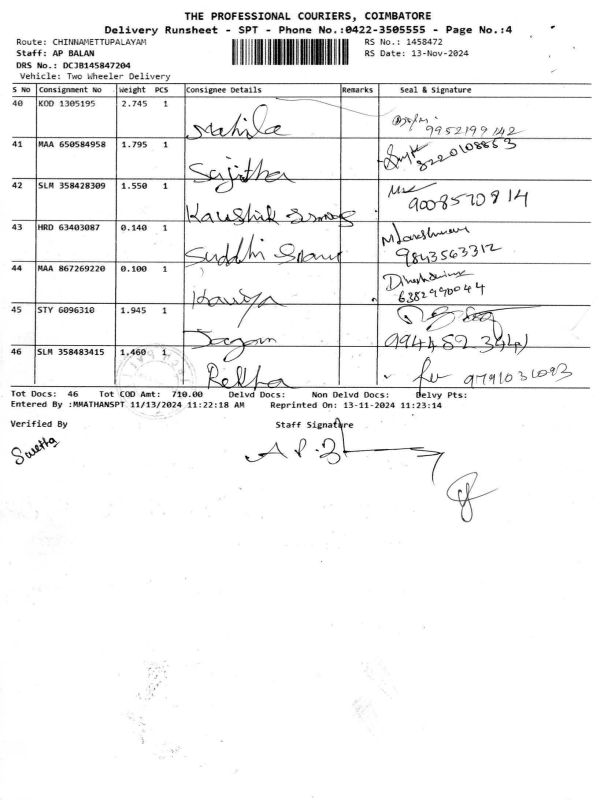 THE PROFESSIONAL COURIERS, COIMBATORE
Delivery Runsheet - SPT - Phone No.:0422-3505555 - Page No.:4
Route: CHINNAMETTUPALAYAM RS No.: 1458472
Staff: AP BALAN RS Date: 13-Nov-2024
DRS No.: DCJB145847204
Vehicle: Two Wheeler Delivery
S No Consignment No Weight PCS Consignee Details Remarks Seal & Signature
40 KOD 1305195 2.745 1 Mahila
9952199142
41 MAA 650584958 1.795 1 Sajitha 8220108853
42 SLM 358428309 1.550 1 Kaushik 9008570814
43 HRD 63403087 0.140 1 Suddhi
9843563312
44 MAA 867269220 0.100 1 Kaviya
6382990044
45 STY 6096310 1.945 1 Jagan
46 SLM 358483415 1.460 1 Rekha 9791031093
Tot Docs: 46 Tot COD Amt: 710.00 Delvd Docs: Non Delvd Docs: Delvy Pts:
Entered By :MMATHANSPT 11/13/2024 11:22:18 AM Reprinted On: 13-11-2024 11:23:14
Verified By Staff Signature
A P. B